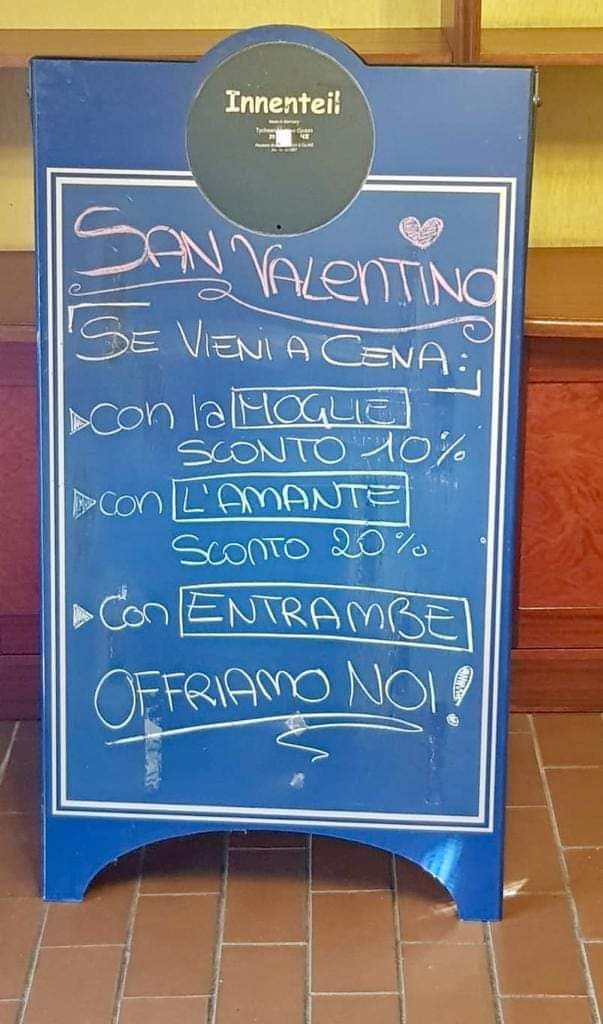 Innenteil
SAN VALENTINO
SE VIENI A CENA...:
con la MOGLIE
SCONTO 10%
con L'AMANTE
SCONTO 20%
Con ENTRAMBE
OFFRIAMO NOI!